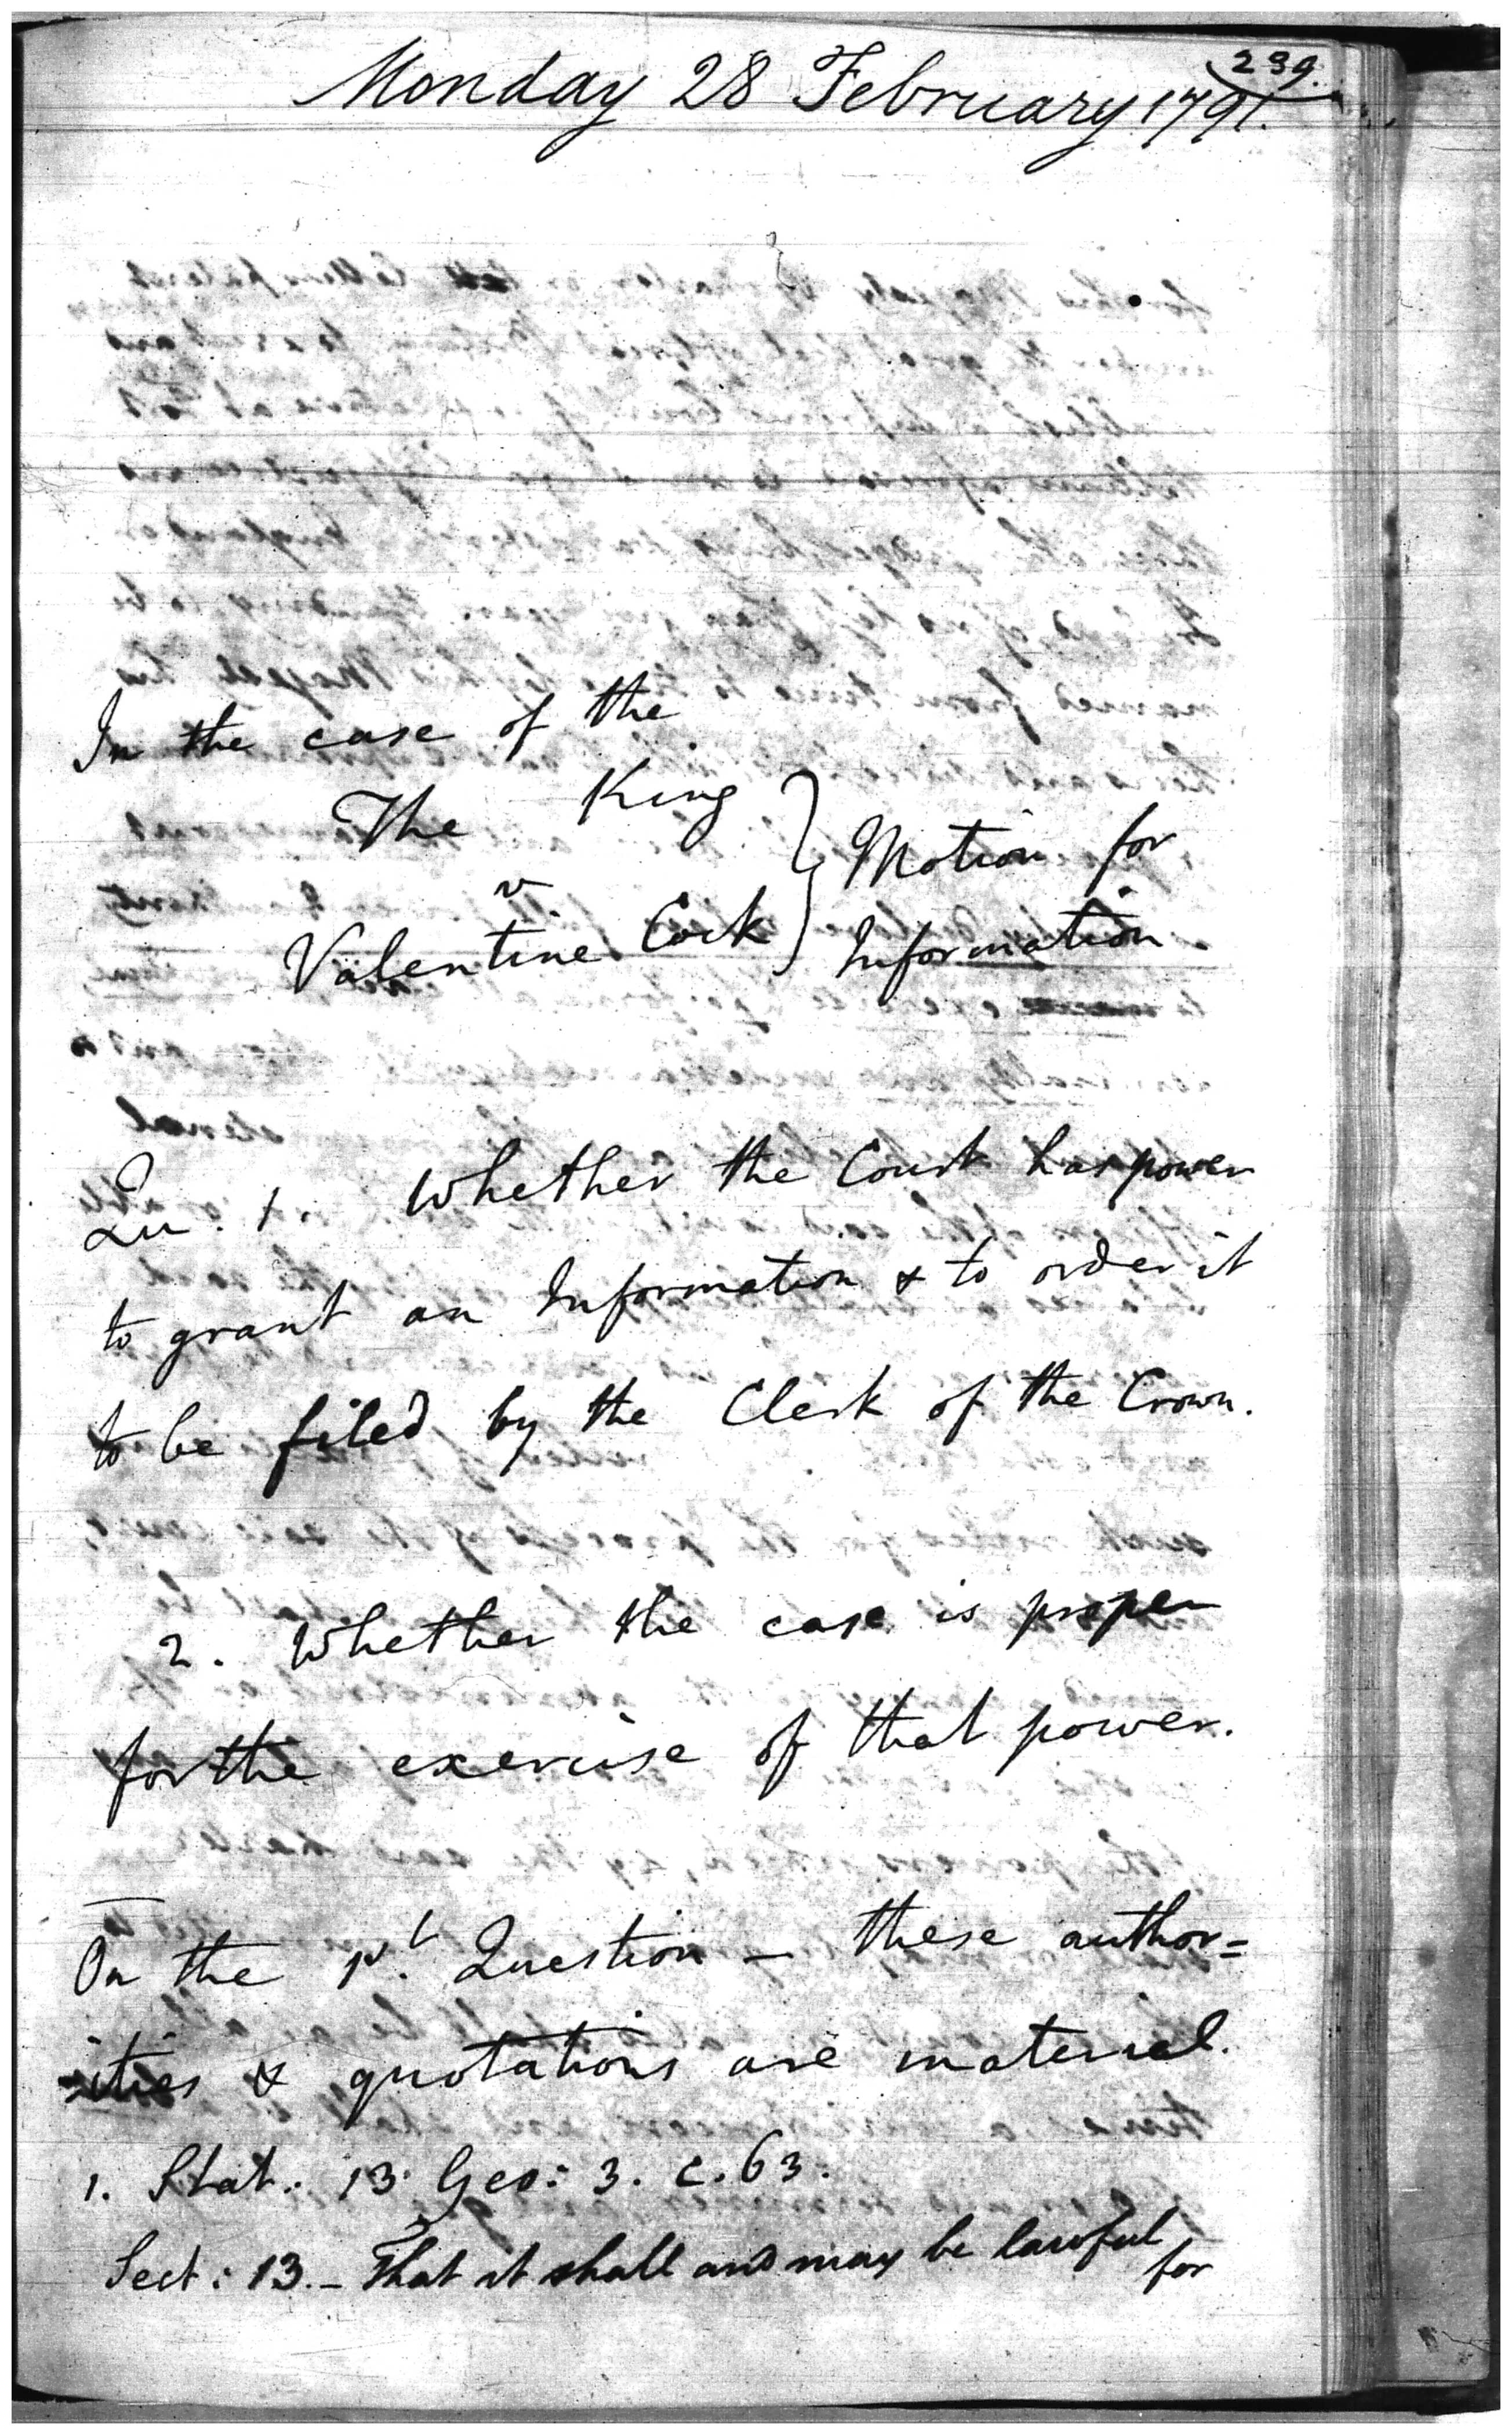 239.
Monday 28 February 1791.
In the case of the
The King
v
Valentine Cock
} Motion for
Information
Qu. 1. Whether the Court has power
to grant an Information & to order it
to be filed by the Clerk of the Crown.
2. Whether the case is proper
for the exercise of that power.
On the 1st. Question – these author=
=ities & quotations are material.
1. Stat: 13 Geo: 3. c. 63.
Sect: 13. – That it shall and may be lawful
for